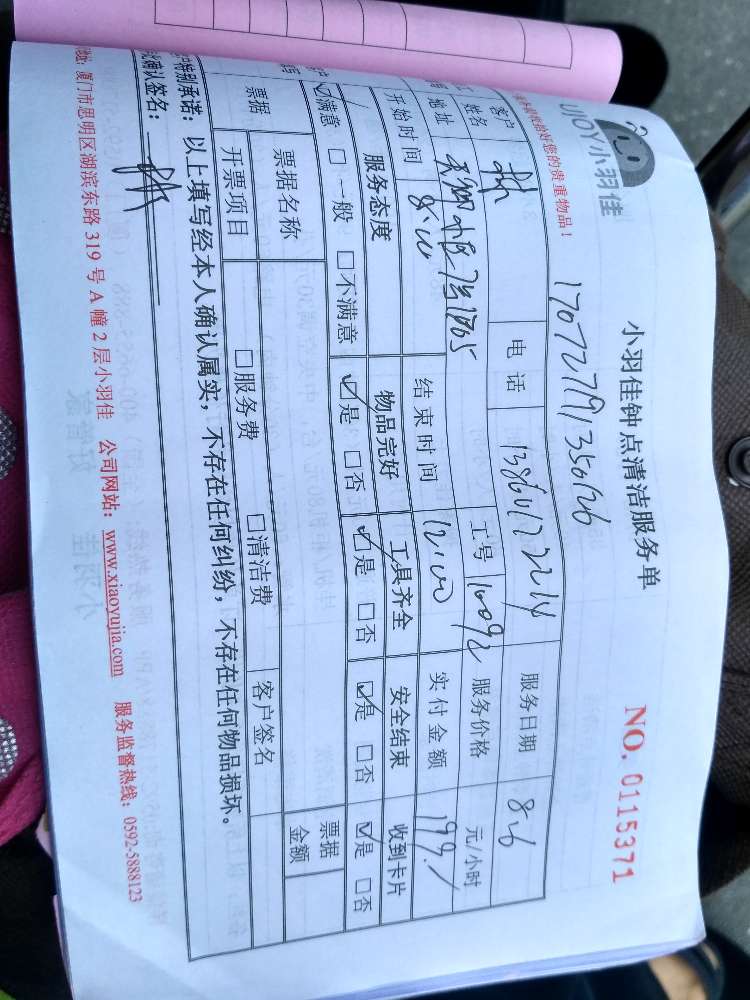 UJOY小羽佳
小羽佳钟点清洁服务单
NO. 0115371
您的贵重物品！
客户 林 电话 13860172214 服务日期 8.6
姓名 工号 16092 服务价格 元/小时
地址 7号1705
开始时间 8:00 结束时间 12:00 实付金额 199.
服务态度 物品完好 工具齐全 安全结束 收到卡片
☑满意 □一般 □不满意 ☑是 □否 ☑是 □否 ☑是 □否 ☑是 □否
票据 票据名称 票据金额
开票项目 □服务费 □清洁费 客户签名
特别承诺：以上填写经本人确认属实，不存在任何纠纷，不存在任何物品损坏。
确认签名：
厦门市思明区湖滨东路 319 号 A 幢 2 层小羽佳 公司网站：www.xiaoyujia.com 服务监督热线：0592-5888123